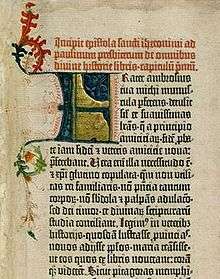 Incipit epistola sancti iheronimi ad
paulinum presbiterum de omnibus
divine historie libris. capitulū primū.
Frater ambrosius
tua michi munuscula
perferens. detulit
sil' et suavissimas
lrās. q̄ a principio
amicicia℞. fidē pba-
te iam fidei et veteris amicicie nova
pferebant. Vera em̄ illa necessitudo ē.
et xpi glutino copulata. qm̄ non utili-
tas rei familiaris. nō pn̄cia tantum
corpo℞. nō sbdola et palpās adulaco.
sed dei timor. et divina℞ scriptura℞
studia conciliant. Legim⁹ in veterib⁹
historiis. quosdā lustrasse puincias.
novos adiisse pplos. maria trāsisse.
ut eos quos ex libris noverant: corā
q⁊ viderēt. Sicut pitagoras memphi-